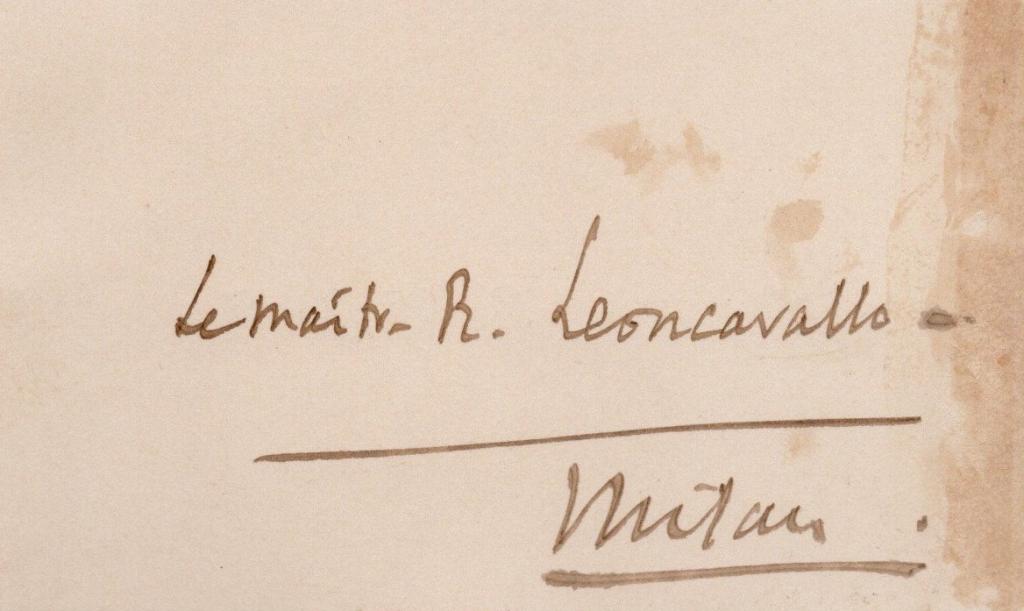 Le maîtr- R. Leoncavallo -
Milan .